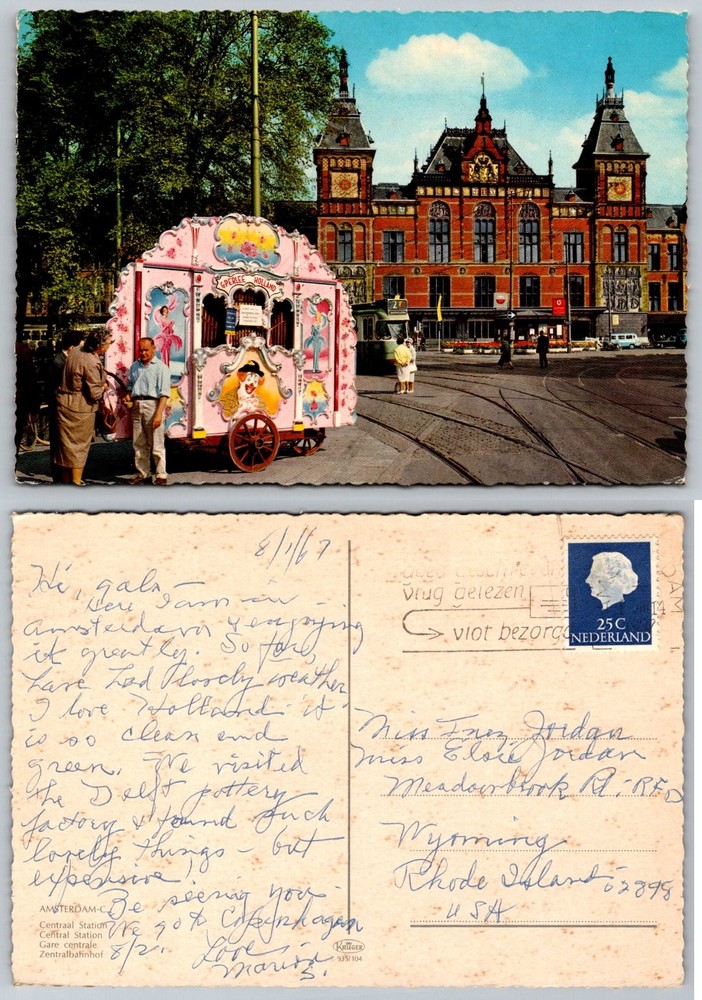 SPERLEE HOLLAND
8/1/67
Hi, gals -
Here I am in
Amsterdam & enjoying
it greatly. So far,
have had lovely weather
I love Holland - it
is so clean and
green. We visited
the Delft pottery
factory & found such
lovely things - but
expensive!
Be seeing you -
We go to Copenhagen
8/2.
Love -
Marion S.
AMSTERDAM-C
Centraal Station
Central Station
Gare centrale
Zentralbahnhof
KRÜGER
935/104
vlug gelezen
vlot bezorgd
DAM
14
25C
NEDERLAND
Miss Inez Jordan
Miss Elsie Jordan
Meadowbrook Rd. - RFD
Wyoming
Rhode Island 02898
USA